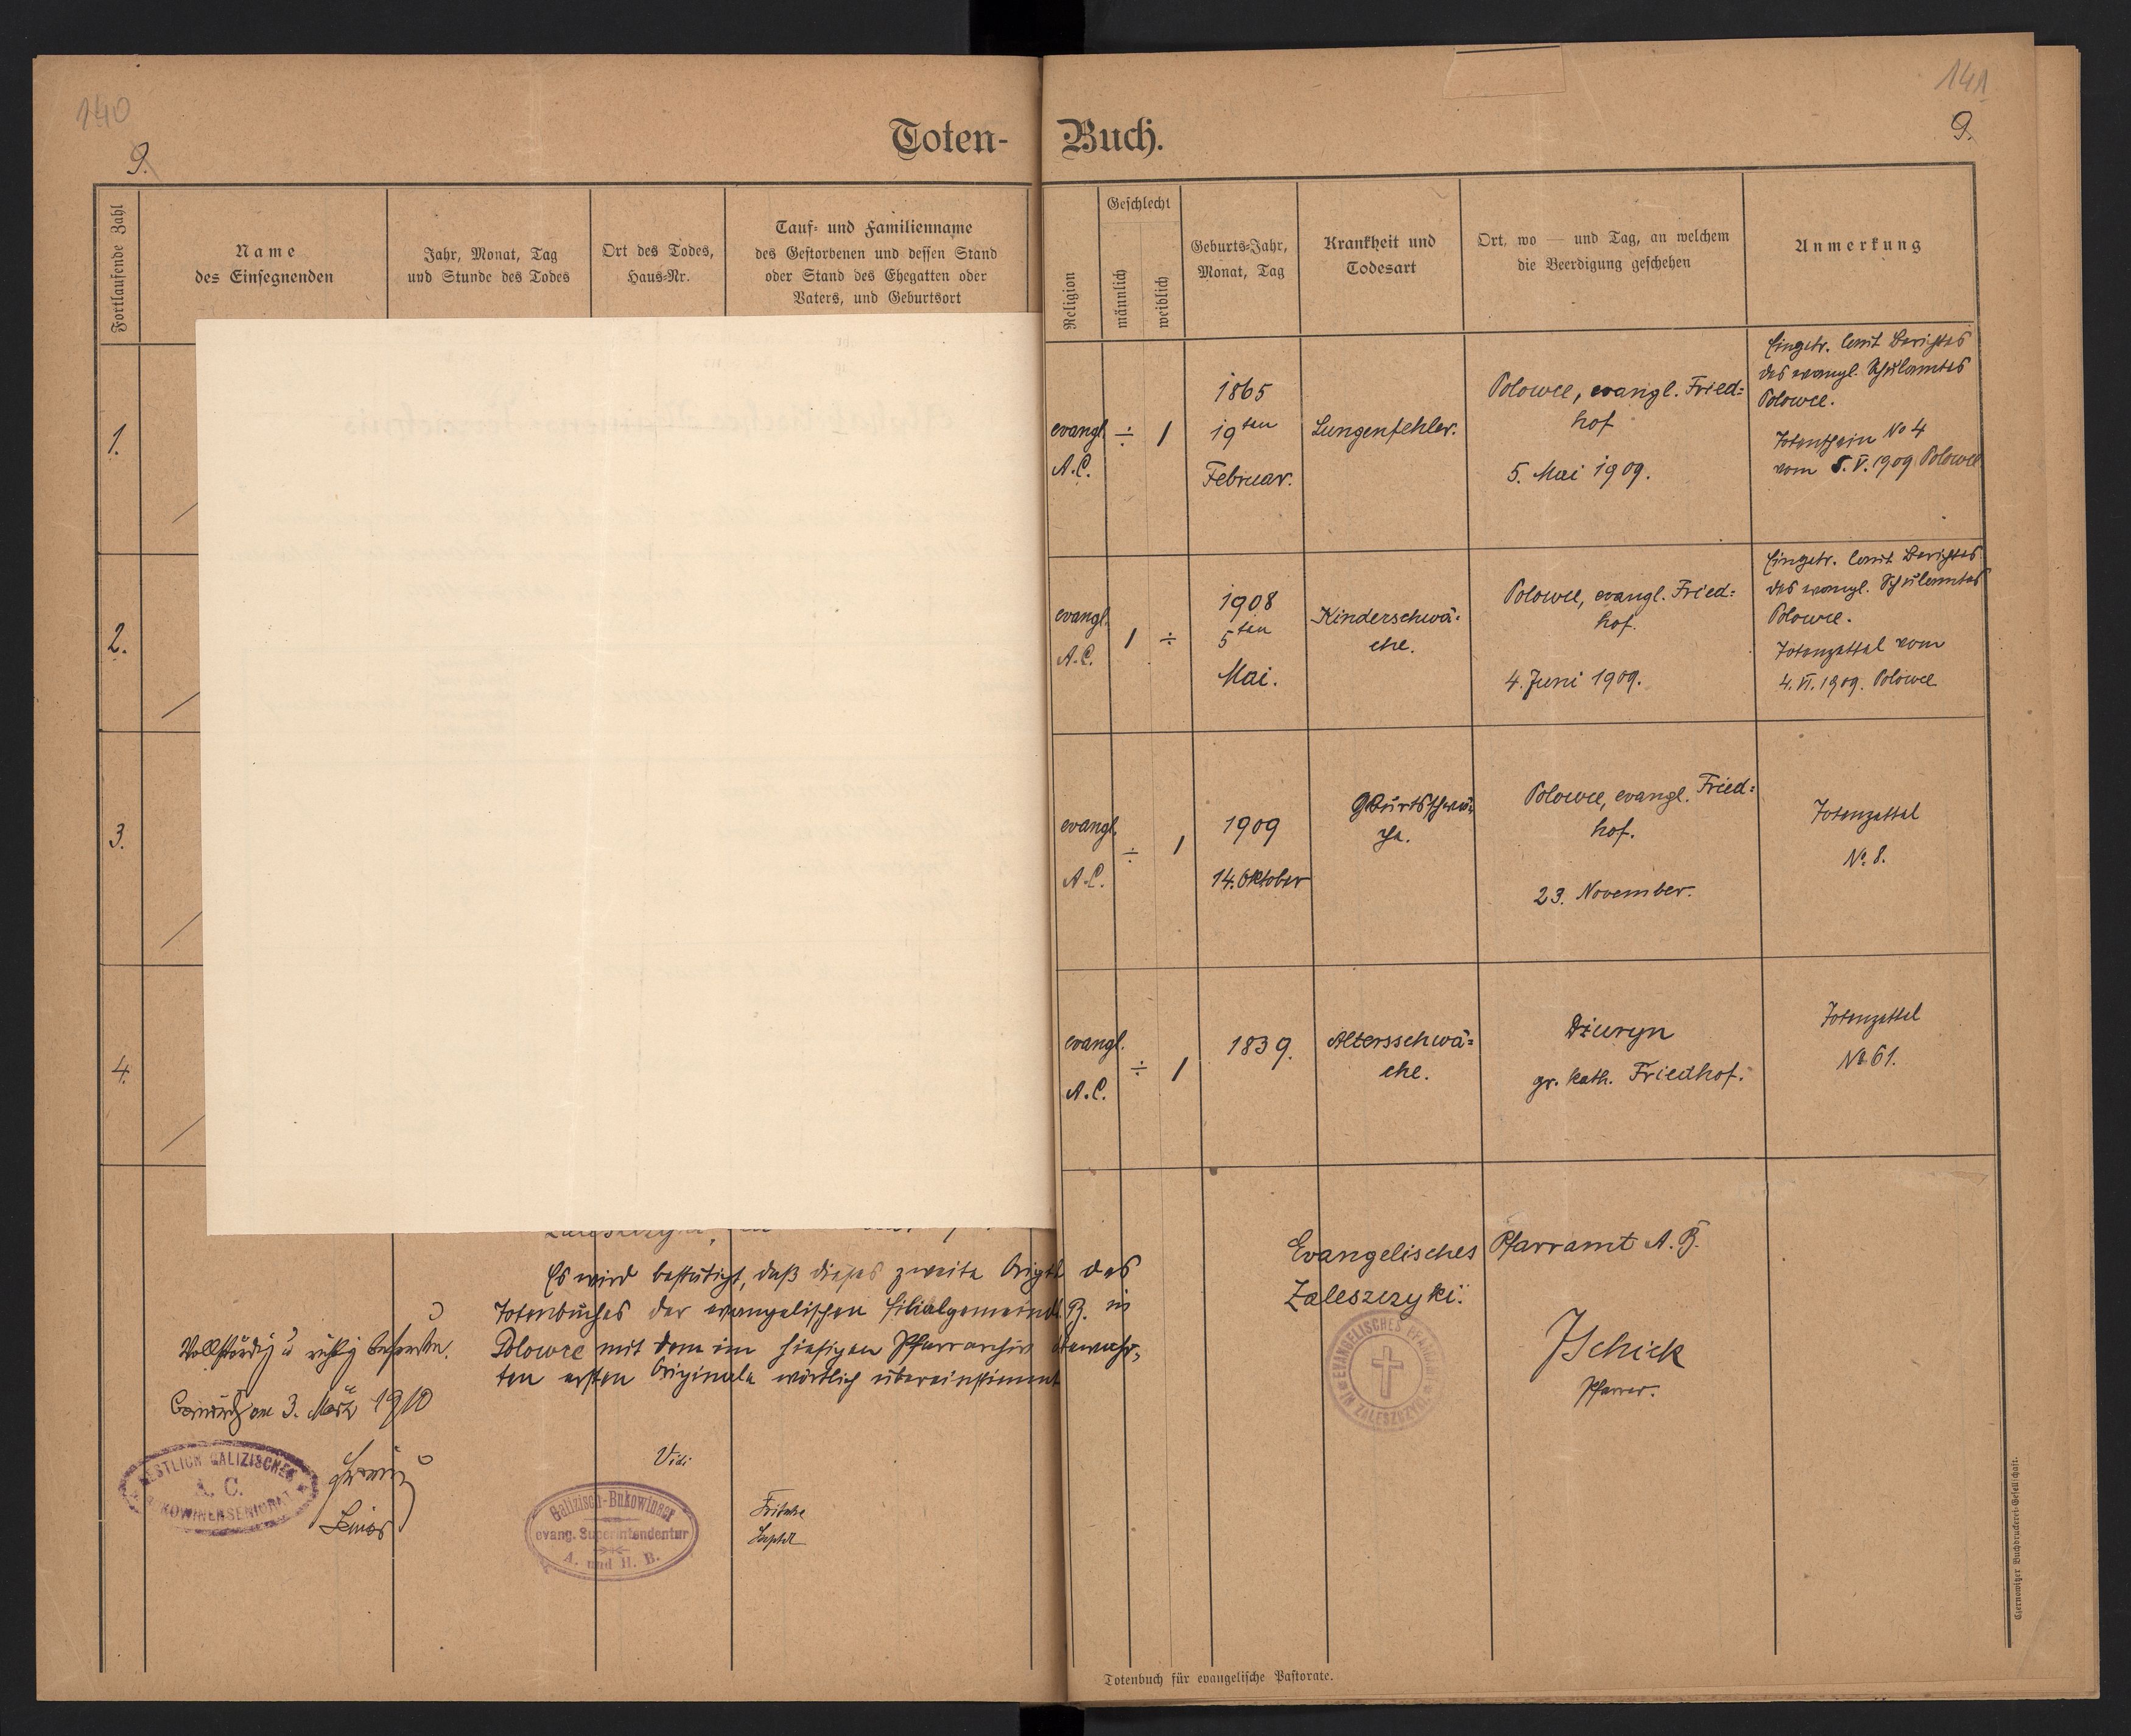 140
9.
Toten-
Fortlaufende Zahl
Name
des Einsegnenden
Jahr, Monat, Tag
und Stunde des Todes
Ort des Todes,
Haus-Nr.
Tauf- und Familienname
des Gestorbenen und dessen Stand
oder Stand des Ehegatten oder
Vaters, und Geburtsort
1.
2.
3.
4.
Es wird bestätigt, daß dieses zweite Origl des
Totenbuches der evangelischen Filialgemeinde B. in
Polowce mit dem im hiesigen Pfarrarchiv bewahr-
ten ersten Originale wörtlich übereinstimmt
Vollständig u richtig befunden.
am 3. März 1910
OESTLICH GALIZISCHES
A. C.
BUKOWINER SENIORAT
Senior
Vidi
Galizisch-Bukowinaer
evang. Superintendentur
A. und H. B.
Fritsche
Supdt
141
9.
Buch.
Religion
Geschlecht
männlich
weiblich
Geburts-Jahr,
Monat, Tag
Krankheit und
Todesart
Ort, wo — und Tag, an welchem
die Beerdigung geschehen
Anmerkung
evangl.
A.C.
÷ 1
1865
19ten
Februar.
Lungenfehler.
Polowce, evangl. Fried=
hof
5. Mai 1909.
Eingetr. laut Berichtes
des evangl. Schulamtes
Polowce.
Totenschein No 4
vom 5. V. 1909 Polowce
evangl.
A.C.
1 ÷
1908
5ten
Mai.
Kinderschwä=
che.
Polowce, evangl. Fried=
hof.
4. Juni 1909.
Eingetr. laut Berichtes
des evangl. Schulamtes
Polowce.
Totenzettel vom
4. VI. 1909. Polowce
evangl.
A.C.
÷ 1
1909
14. Oktober
Geburtsschwä-
che.
Polowce, evangl. Fried=
hof.
23. November.
Totenzettel
No. 8.
evangl.
A.C.
÷ 1
1839.
Altersschwä=
che.
Dżuryn
gr. kath. Friedhof.
Totenzettel
No 61.
Evangelisches Pfarramt A. B.
Zaleszczyki.
EVANGELISCHES PFARRAMT
IN ZALESZCZYKI
JSchick
Pfarrer.
Totenbuch für evangelische Pastorate.
Czernowitzer Buchdruckerei-Gesellschaft.